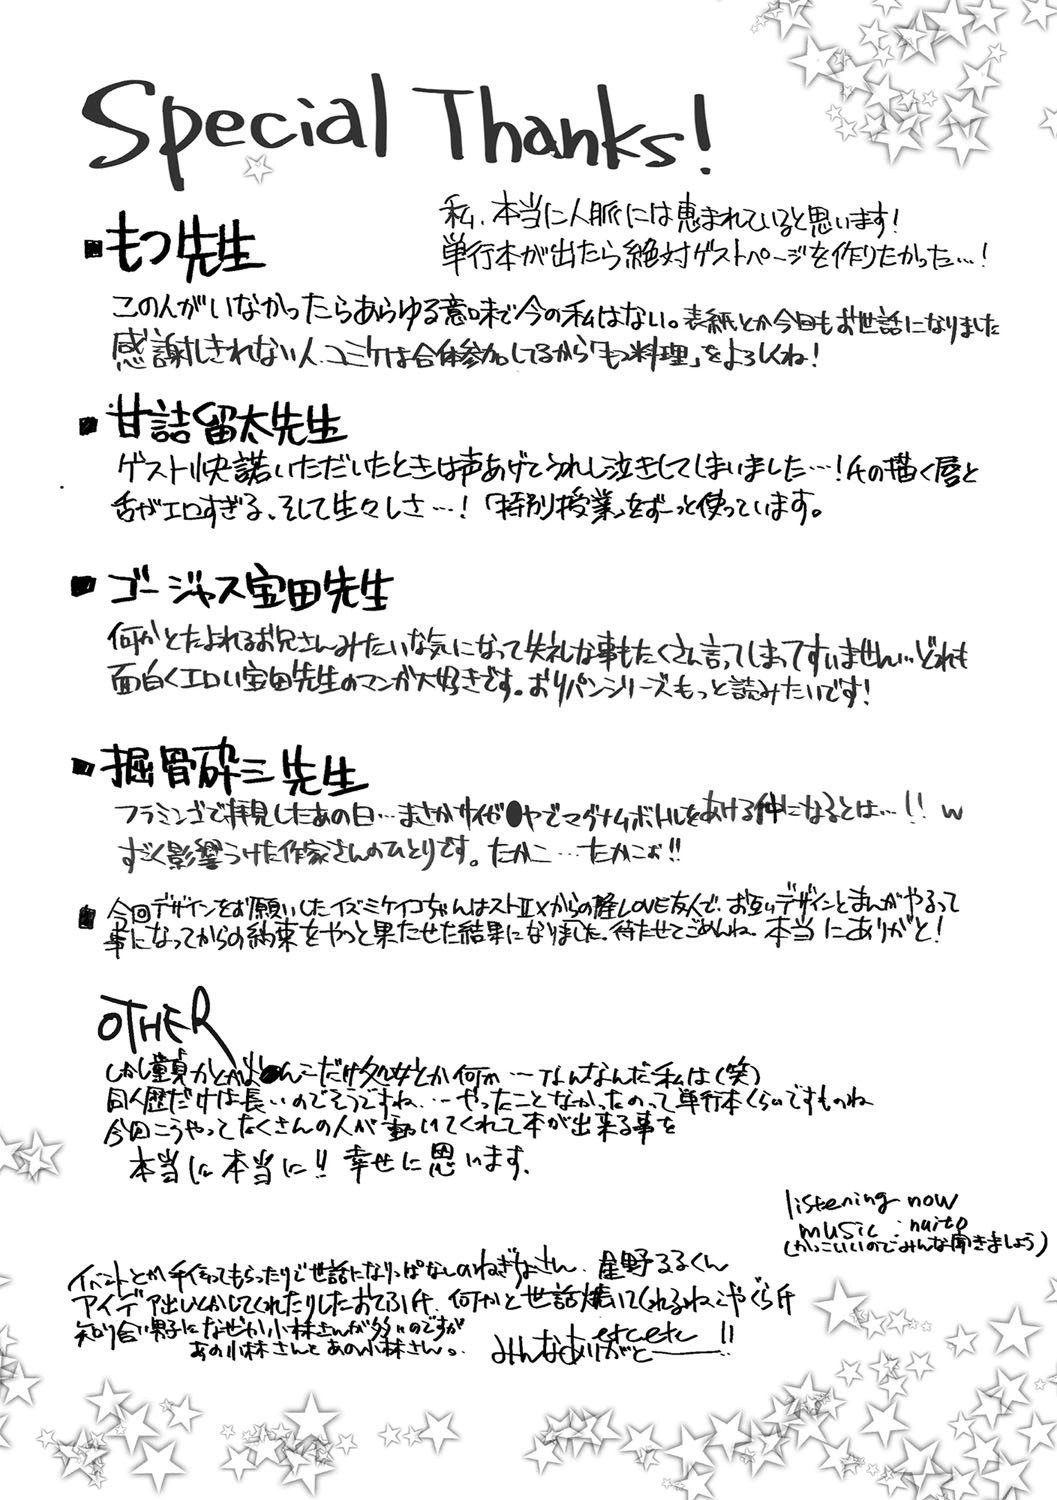 Special Thanks!
私、本当に人脈には恵まれていると思います!
単行本が出たら絶対ゲストページを作りたかった…!
■もつ先生
この人がいなかったらあらゆる意味で今の私はない。表紙とか今回もお世話になりました
感謝しきれない人、コミケは合体参加してるから「もつ料理」をよろしくね!
■甘詰留太先生
ゲスト快諾いただいたときは声あげてうれし泣きしてしまいました…!Hの描く唇と
舌がエロすぎる、そして生々しさ…!「特別授業」をずーっと使っています。
■ゴージャス宝田先生
何かとたよれるお兄さんみたいな気になって失礼な事もたくさん言ってしまってすいません…どれも
面白くエロい宝田先生のマンガ大好きです。おりパンシリーズもっと読みたいです!
■掘骨砕三先生
フラミンゴで拝見したあの日…まさかサイゼ●ヤでマグナムボトルをあける仲になるとは…!! w
すごく影響うけた作家さんのひとりです。たかこ…たかこぉ!!
■今回デザインをお願いしたイズミケイコちゃんはストⅡXからの隆LOVE友人で、お互いデザインとまんがやるって
事になってからの約束をやっと果たせた結果になりました。待たせてごめんね。本当にありがと!
OTHER
しかし童貞かとか ●んこだけ処女とか何か…なんなんだ私は(笑)
同人歴だけは長いのでそうですね…やったことなかったのって単行本くらいですものね
今回こうやってたくさんの人が動いてくれて本が出来る事を
本当に本当に!! 幸せに思います。
listening now
music : naito
(かっこいいのでみんな聞きましょう)
イベントとか手伝ってもらったりで世話になりっぱなしのねぎなさん、星野るるくん
アイデア出しとかしてくれたりしたおてふH、何かと世話焼いてくれるねこやぐらH
知り合い男子になぜか小林さんが多いのですが
あの小林さんとあの小林さん。
etcetc
みんなありがと――!!